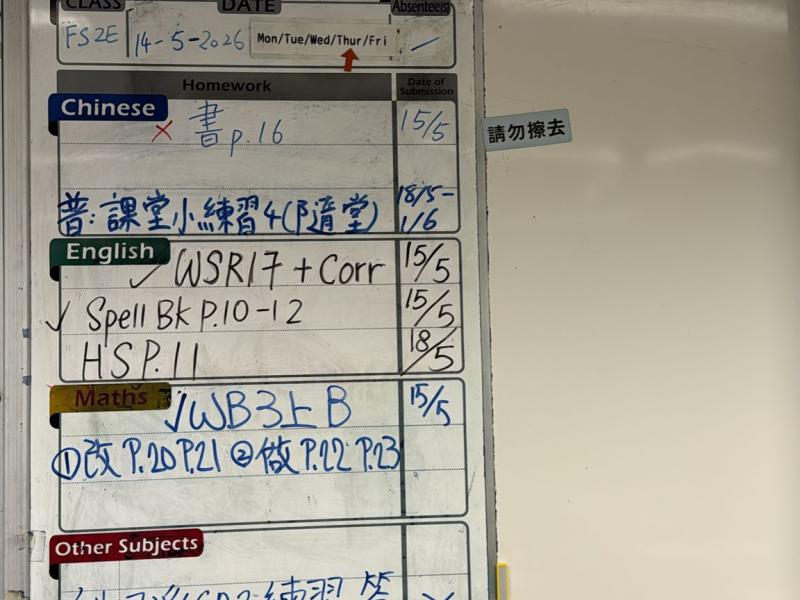 CLASS DATE Absentee(s)
FS2E 14-5-2026 Mon/Tue/Wed/Thur/Fri
Homework Date of Submission
Chinese
書 p.16 15/5
請勿擦去
普:課堂小練習4(隨堂) 18/5-1/6
English
WSR17 + Corr 15/5
Spell Bk P.10-12 15/5
HSP.11 18/5
Maths
WB3上B 15/5
①改 P.20 P.21 ②做 P.22 P.23
Other Subjects